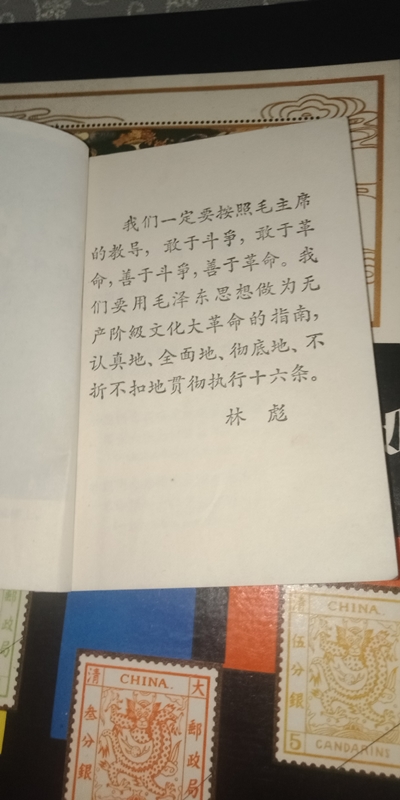 我们一定要按照毛主席
的教导，敢于斗争，敢于革
命，善于斗争，善于革命。我
们要用毛泽东思想做为无
产阶级文化大革命的指南，
认真地、全面地、彻底地、不
折不扣地贯彻执行十六条。
林 彪
CHINA.
大清郵政局
叁分銀
CHINA
清
伍分銀
5
CANDARINS
郵政局